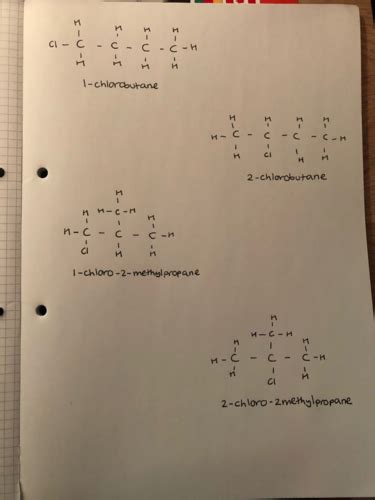 H H H H
Cl - C - C - C - C - H
H H H H
1-chlorobutane
H H H H
H - C - C - C - C - H
H Cl H H
2-chlorobutane
H
H H - C - H H
H - C - C - C - H
Cl H H
1-chloro-2-methylpropane
H
H H - C - H H
H - C - C - C - H
H Cl H
2-chloro-2methylpropane